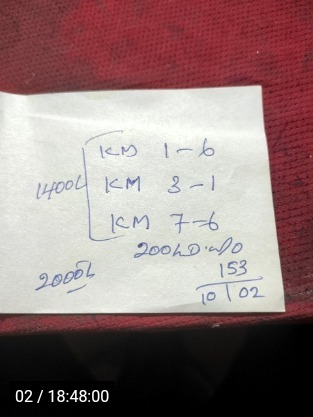 KM 1-6
1400L KM 3-1
KM 7-6
200L D.W/O
2000L 153
10/02
02 / 18:48:00